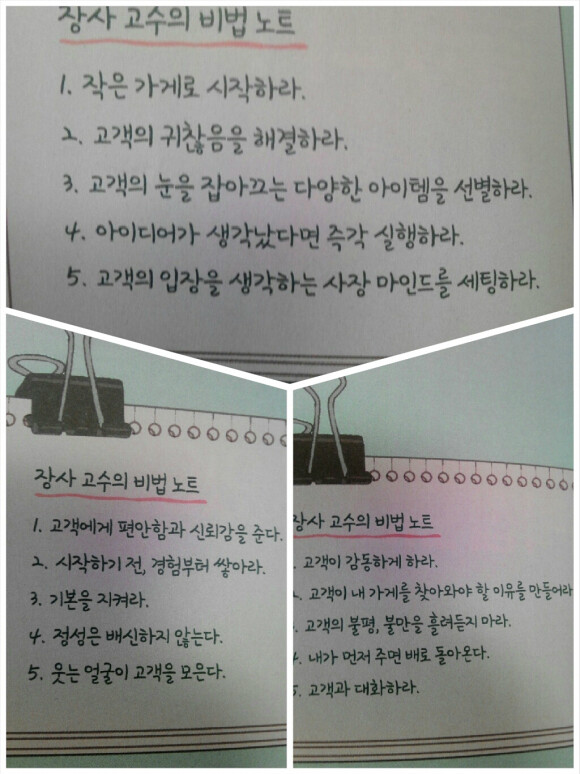 장사 고수의 비법 노트
1. 작은 가게로 시작하라.
2. 고객의 귀찮음을 해결하라.
3. 고객의 눈을 잡아끄는 다양한 아이템을 선별하라.
4. 아이디어가 생각났다면 즉각 실행하라.
5. 고객의 입장을 생각하는 사장 마인드를 세팅하라.
장사 고수의 비법 노트
1. 고객에게 편안함과 신뢰감을 준다.
2. 시작하기 전, 경험부터 쌓아라.
3. 기본을 지켜라.
4. 정성은 배신하지 않는다.
5. 웃는 얼굴이 고객을 모은다.
장사 고수의 비법 노트
. 고객이 감동하게 하라.
2. 고객이 내 가게를 찾아와야 할 이유를 만들어라
3. 고객의 불평, 불만을 흘려듣지 마라.
4. 내가 먼저 주면 배로 돌아온다.
5. 고객과 대화하라.